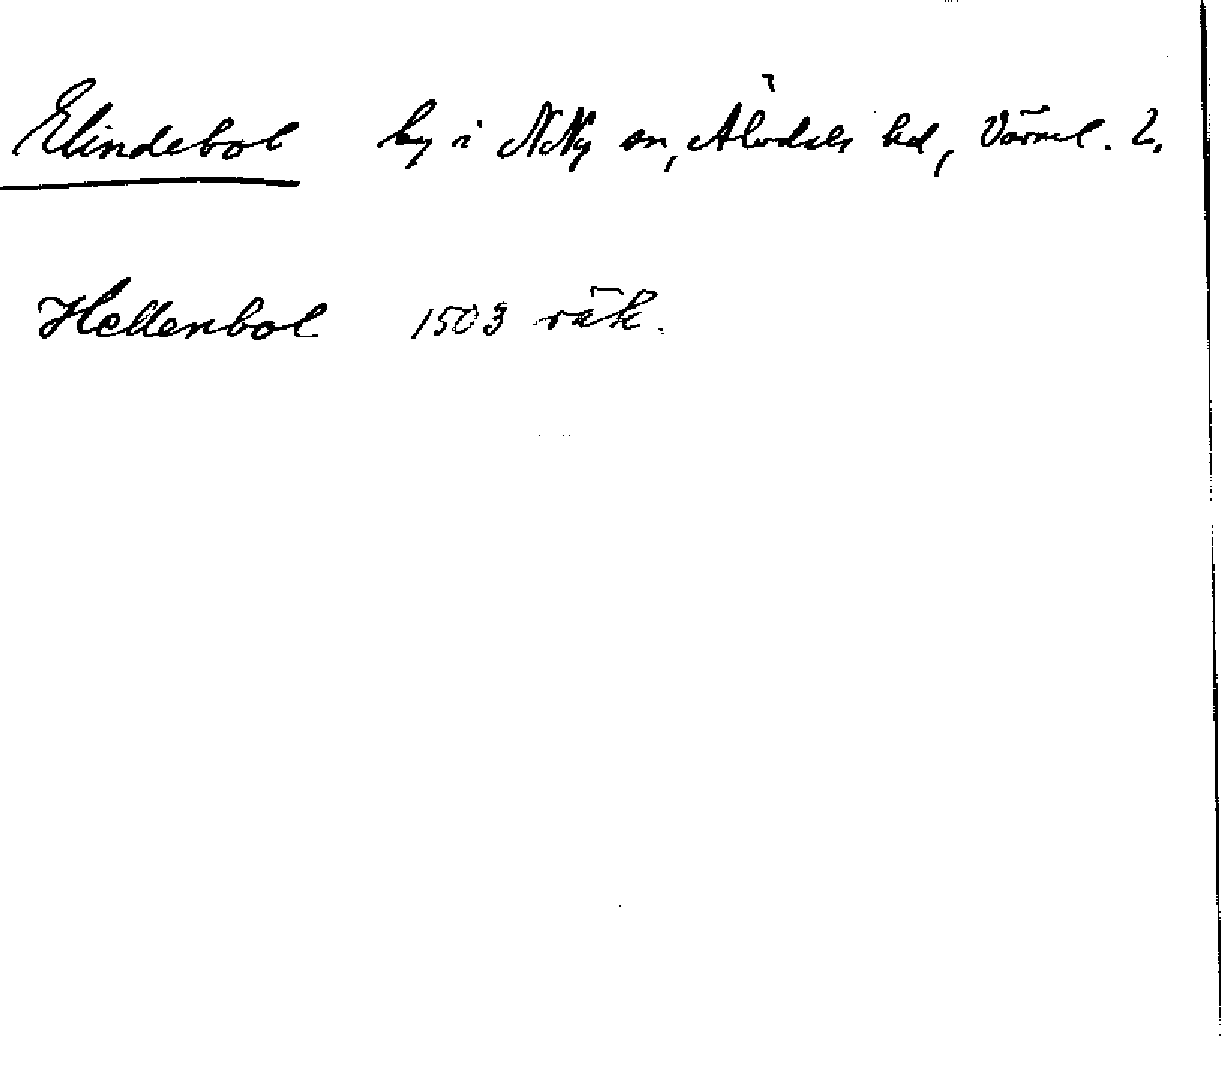 Elindebol by i N Ny sn, Älvdals hd, Värml. L.
Hellenbol 1503 räk.